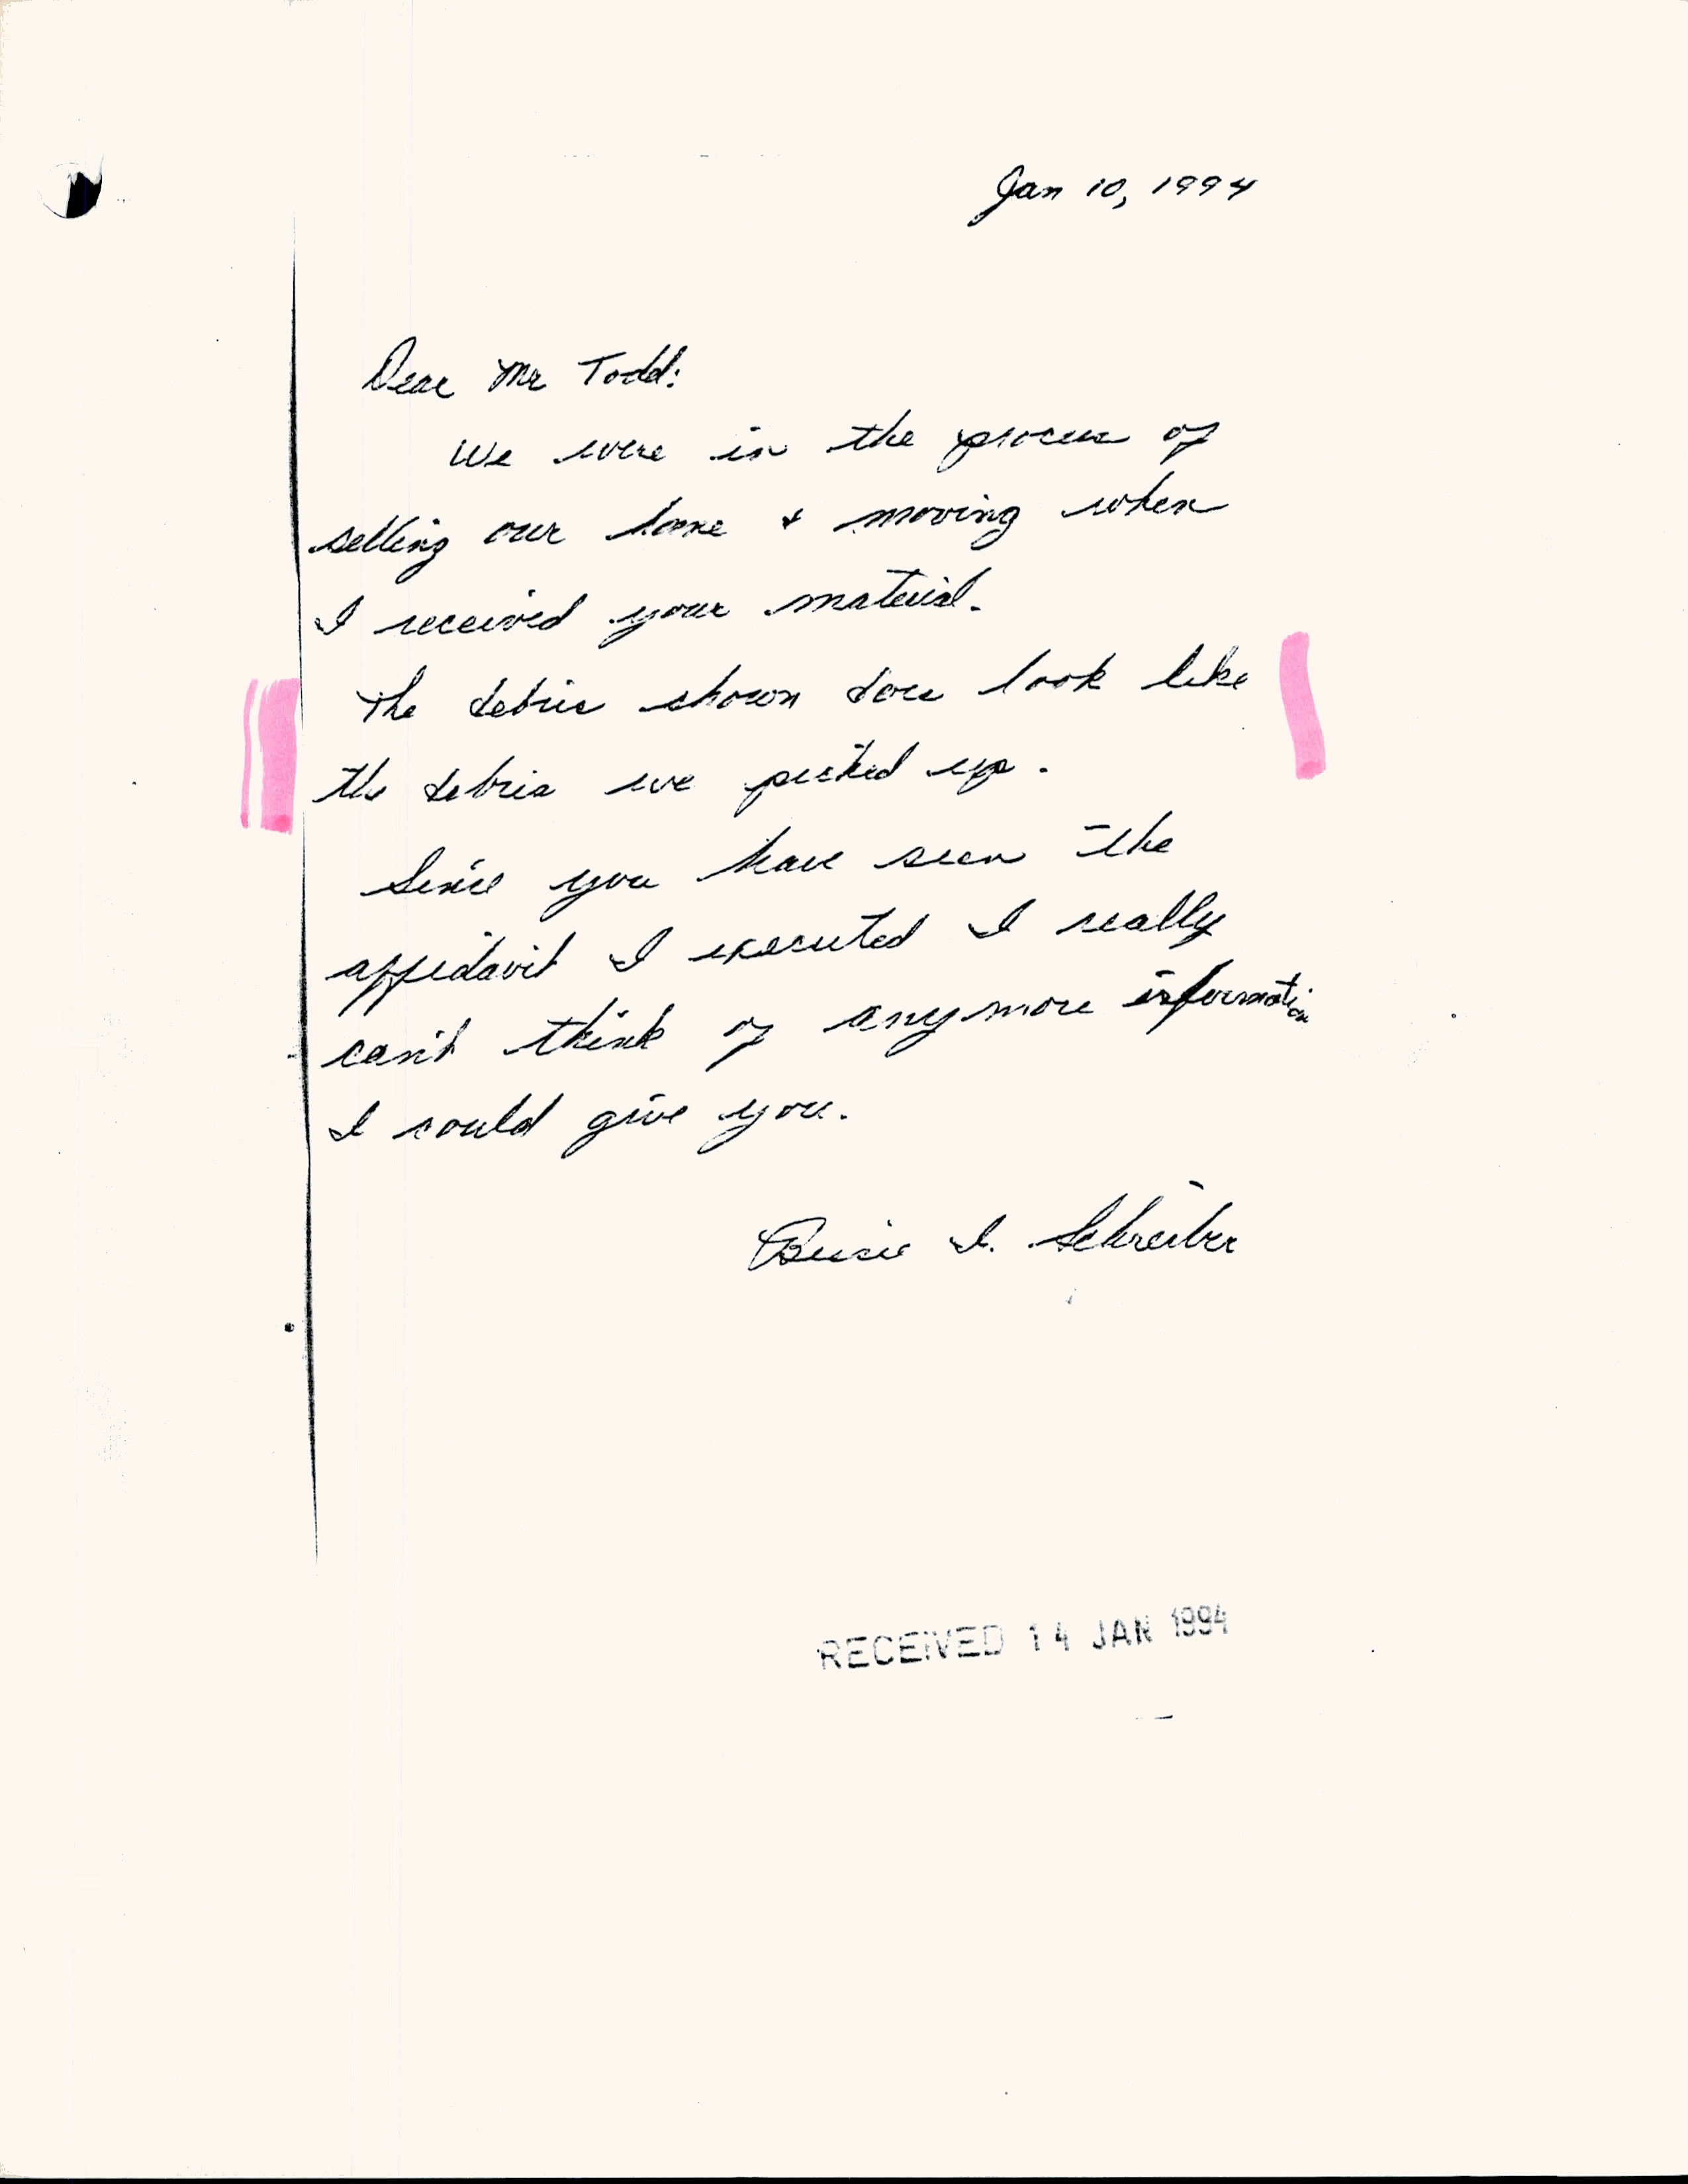 Jan 10, 1994
Dear Mr Todd:
We were in the process of
selling our home & moving when
I received your material.
The debris shown does look like
the debris we picked up.
Since you have seen the
affidavit I executed I really
can't think of anymore information
I could give you.
Bessie I. Schreiber
RECEIVED 14 JAN 1994